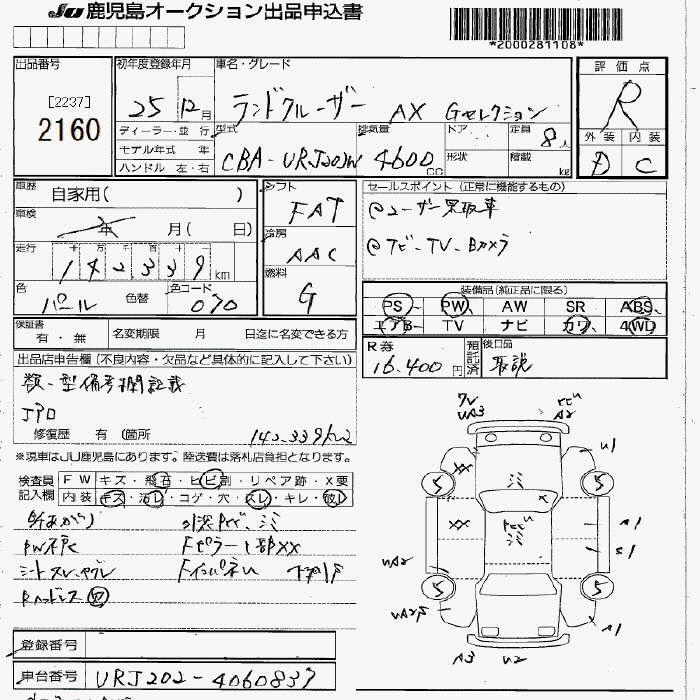 JU 鹿児島オークション出品申込書
*2000281108*
出品番号
[2237]
2160
初年度登録年月
25 12月
車名・グレード
ランドクルーザー AX Gセレクション
評価点
R
外装 内装
D C
ディーラー・並 行
モデル年式 年
ハンドル 左・右
型式
CBA-URJ202W
排気量
4600 CC
ドア
形状
定員
8人
積載
kg
車歴
自家用( )
車検
年 月( 日)
走行
十 万 千 百 十 一
142339 km
色
パール
色替
色コード
070
シフト
FAT
冷房
AAC
燃料
G
セールスポイント(正常に機能するもの)
@ユーザー買取車
@ナビ・TV・Bカメラ
装備品(純正品に限る)
PS PW AW SR ABS
エアB TV ナビ カワ 4WD
保証書
有・無
名変期限 月 日迄に名変できる方
R券
16,400円
預託済
後日品
取説
出品店申告欄(不良内容・欠品など具体的に記入して下さい)
類・型備考欄記載
修復歴 有(箇所
142,339km
※現車はJU鹿児島にあります。陸送費は落札店負担となります。
検査員記入欄
FW キズ・飛石・ヒビ割・リペア跡・X要
内装 キズ・汚レ・コゲ・穴・スレ・キレ・欠品
PW不良
シートスレ、ヤブレ
Fピラー上部XX
U1
A2
XX
5
5
XX
A1
UA2
5
5
A1
A3 U2
登録番号
車台番号 URJ202-4060837